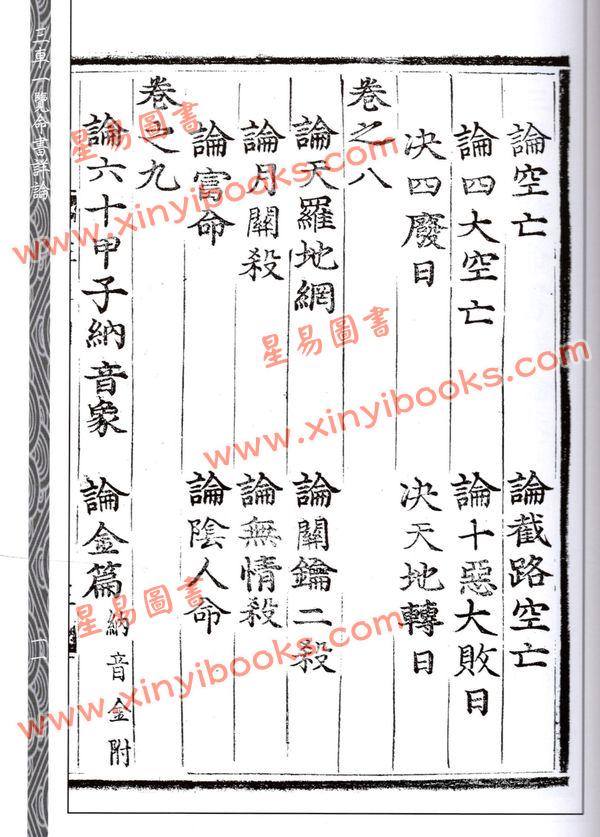 論空亡
論截路空亡
論四大空亡
論十惡大敗日
决四廢日
决天地轉日
卷之八
論天羅地網
論關鑰二殺
論月關殺
論無情殺
論富命
論陰人命
卷之九
論六十甲子納音象
論金篇 納音金附
三車一覽命書詳論
一一
星易圖書
www.xinyibooks.com
星易圖書
www.xinyibooks.com
星易圖書
www.xinyibooks.com